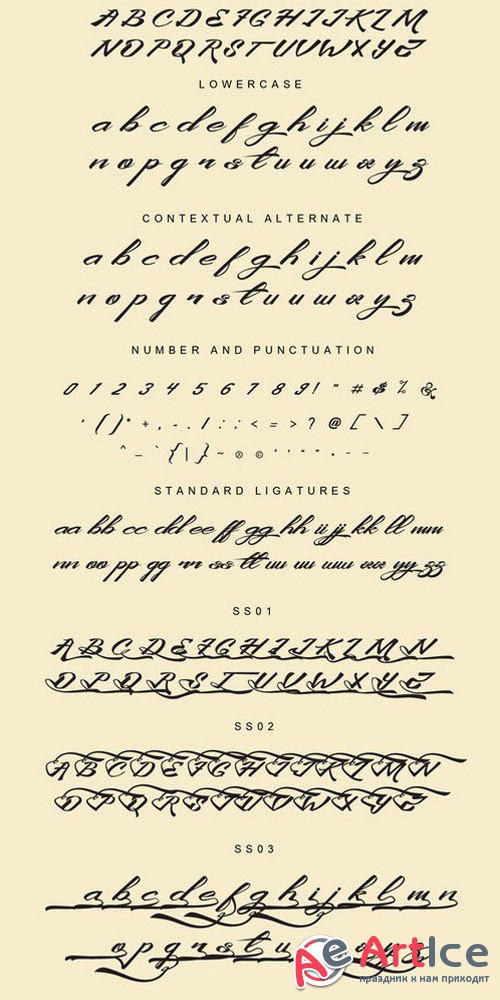 A B C D E F G H I J K L M
N O P Q R S T U V W X Y Z
LOWERCASE
a b c d e f g h i j k l m
n o p q r s t u u w x y z
CONTEXTUAL ALTERNATE
a b c d e f g h i j k l m
n o p q r s t u u w x y z
NUMBER AND PUNCTUATION
0 1 2 3 4 5 6 7 8 9 ! " # $ % &
' ( ) * + , - . / : ; < = > ? @ [ \ ]
^ _ ` { | } ~ ® © ‘ ’ “ ” • – —
STANDARD LIGATURES
aa bb cc dd ee ff gg hh ii jj kk ll mm
nn oo pp qq rr ss tt uu uu ww xx yy zz
SS01
A B C D E F G H I J K L M N
O P Q R S T U V W X Y Z
SS02
A B C D E F G H I J K L M N
O P Q R S T U V W X Y Z
SS03
a b c d e f g h i j k l m n
o p q r s t u
Ae ArtIce
праздник к нам приходит